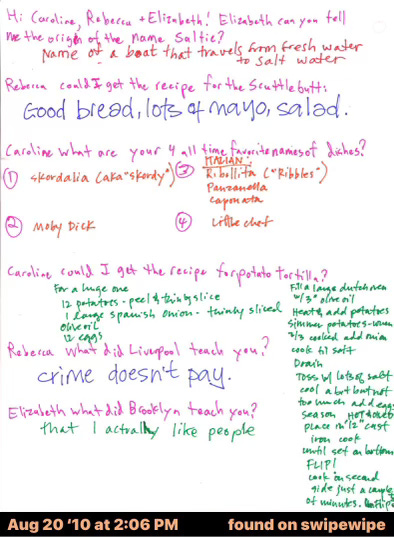 Hi Caroline, Rebecca + Elizabeth! Elizabeth can you tell
me the origin of the name Saltie?
Name of a boat that travels from fresh water
to salt water
Rebecca could I get the recipe for the Scuttlebutt:
Good bread, lots of mayo, salad.
Caroline what are your 4 all time favorite names of dishes?
① skordalia (aka "skordy")
② Moby Dick
③ ITALIAN:
Ribollita ("Ribbles")
Panzanella
caponata
④ Little chef
Caroline could I get the recipe for potato tortilla?
For a huge one
12 potatoes - peel & thinly slice
1 large spanish onion - thinly sliced
olive oil
12 eggs
Fill a large dutch oven
w/ ⅓ olive oil
Heat & add potatoes
simmer potatoes - when
⅔ cooked add onion
cook til soft
Drain
Toss w/ lots of salt
cool a bit but not
too much add eggs
season
place in 12" cast
iron cook
until set on bottom
FLIP!
cook on second
side just a couple
of minutes.
Rebecca what did Liverpool teach you?
crime doesn't pay.
Elizabeth what did Brooklyn teach you?
that I actually like people
Aug 20 '10 at 2:06 PM
found on swipewipe